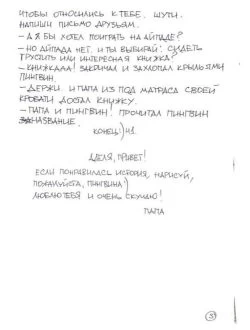 ЧТОБЫ ОТНОСИЛИСЬ К ТЕБЕ. ШУТИ.
НАПИШИ ПИСЬМО ДРУЗЬЯМ.
– А Я БЫ ХОТЕЛ ПОИГРАТЬ НА АЙПАДЕ?
– НО АЙПАДА НЕТ. И ТЫ ВЫБИРАЙ: СИДЕТЬ
ГРУСТИТЬ ИЛИ ИНТЕРЕСНАЯ КНИЖКА?
– КНИЖКАAA! ЗАКРИЧАЛ И ЗАХЛОПАЛ КРЫЛЬЯМИ
ПИНГВИН
– ДЕРЖИ. И ПАПА ИЗ ПОД МАТРАСА СВОЕЙ
КРОВАТИ ДОСТАЛ КНИЖКУ.
– ПАПА И ПИНГВИН! ПРОЧИТАЛ ПИНГВИН
НАЗВАНИЕ.
КОНЕЦ:)
ДЕЛЯ, ПРИВЕТ!
ЕСЛИ ПОНРАВИЛАСЬ ИСТОРИЯ, НАРИСУЙ,
ПОЖАЛУЙСТА, ПИНГВИНА:)
ЛЮБЛЮ ТЕБЯ И ОЧЕНЬ СКУЧАЮ!
ПАПА